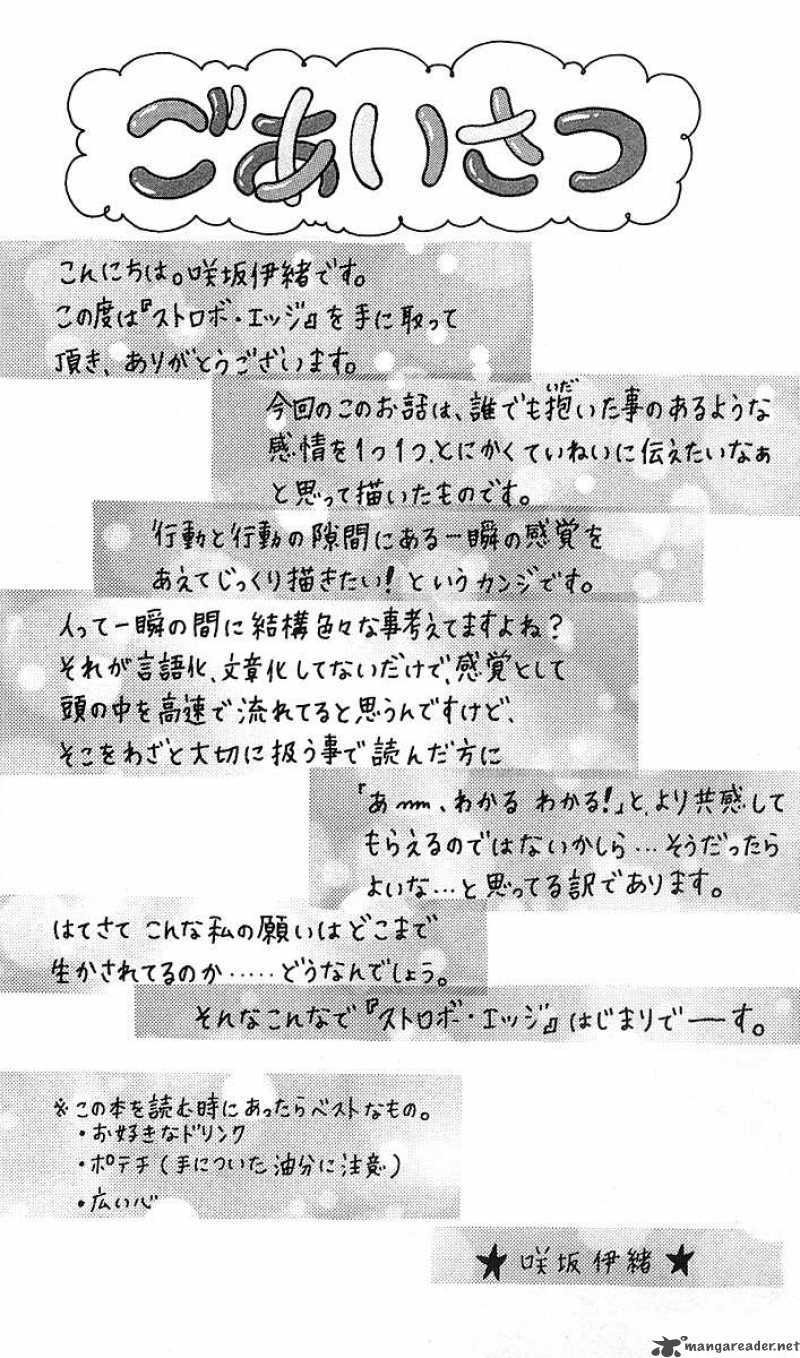 ごあいさつ
こんにちは。咲坂伊緒です。
この度は『ストロボ・エッジ』を手に取って
頂き、ありがとうございます。
いだ
今回のこのお話は、誰でも抱いた事のあるような
感情を1つ1つ、とにかくていねいに伝えたいなぁ
と思って描いたものです。
行動と行動の隙間にある一瞬の感覚を
あえてじっくり描きたい!というカンジです。
人って一瞬の間に結構色々な事考えてますよね?
それが言語化、文章化してないだけで、感覚として
頭の中を高速で流れてると思うんですけど、
そこをわざと大切に扱う事で読んだ方に
「あ〜〜、わかるわかる!」と、より共感して
もらえるのではないかしら…そうだったら
よいな…と思ってる訳であります。
はてさて こんな私の願いはどこまで
生かされてるのか……どうなんでしょう。
そんなこんなで『ストロボ・エッジ』はじまりでーす。
※この本を読む時にあったらベストなもの。
・お好きなドリンク
・ポテチ(手についた油分に注意)
・広い心
★ 咲坂伊緒 ★
mangareader.net